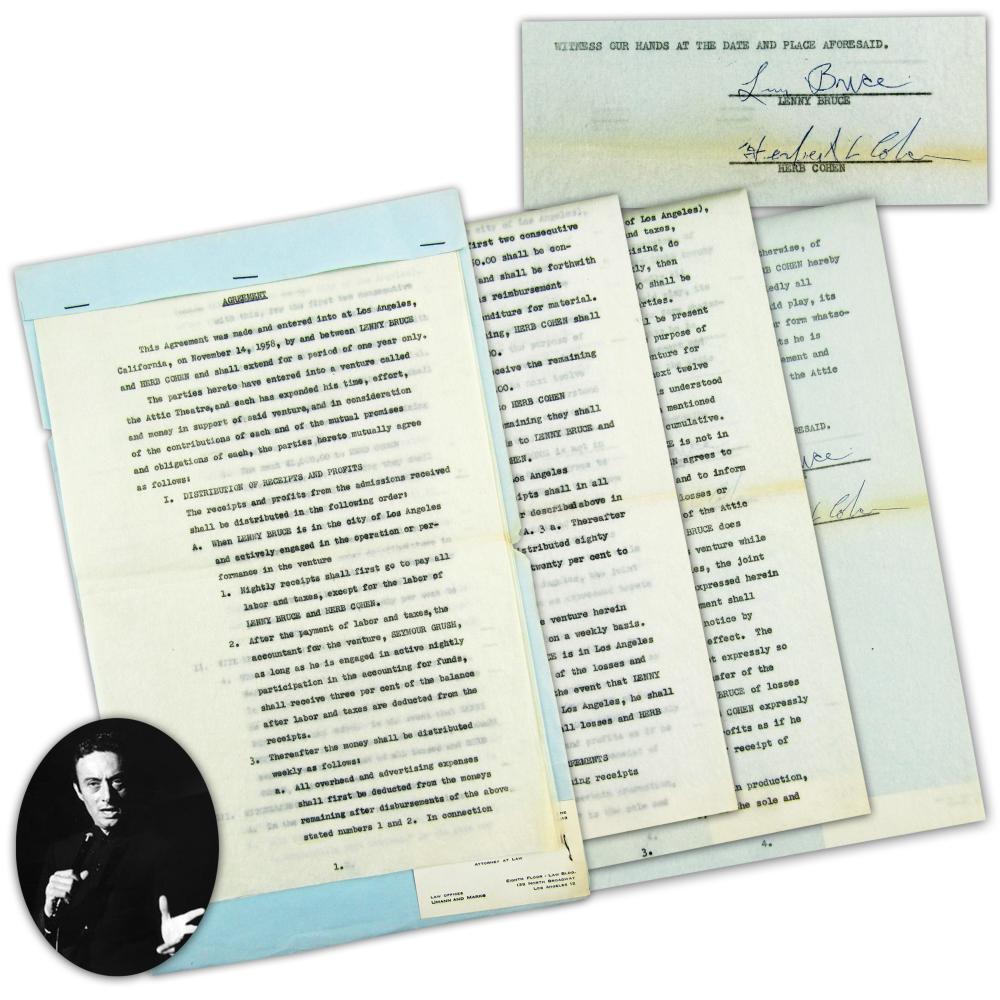 WITNESS OUR HANDS AT THE DATE AND PLACE AFORESAID.
Bruce
LENNY BRUCE
Herbert L Cohen
HERB COHEN
AGREEMENT
This Agreement was made and entered into at Los Angeles,
California, on November 14, 1958, by and between LENNY BRUCE
and HERB COHEN and shall extend for a period of one year only.
The parties hereto have entered into a venture called
the Attic Theatre, and each has expended his time, effort,
and money in support of said venture, and in consideration
of the contributions of each and of the mutual promises
and obligations of each, the parties hereto mutually agree
as follows:
I. DISTRIBUTION OF RECEIPTS AND PROFITS
The receipts and profits from the admissions received
shall be distributed in the following order:
A. When LENNY BRUCE is in the city of Los Angeles
and actively engaged in the operation or per-
formance in the venture
1. Nightly receipts shall first go to pay all
labor and taxes, except for the labor of
LENNY BRUCE and HERB COHEN.
2. After the payment of labor and taxes, the
accountant for the venture, SEYMOUR GRUSH,
as long as he is engaged in active nightly
participation in the accounting for funds,
shall receive three per cent of the balance
after labor and taxes are deducted from the
receipts.
3. Thereafter the money shall be distributed
weekly as follows:
a. All overhead and advertising expenses
shall first be deducted from the moneys
remaining after disbursements of the above
stated numbers 1 and 2. In connection
1.
ATTORNEY AT LAW
EIGHTH FLOOR - LAW BLDG.
139 NORTH BROADWAY
LOS ANGELES 12
LAW OFFICES
UMANN AND MARKS
city of Los Angeles),
first two consecutive
0.00 shall be con-
and shall be forthwith
s reimbursement
nditure for material.
ing, HERB COHEN shall
0.
ceive the remaining
00.
to HERB COHEN
maining they shall
s to LENNY BRUCE and
HEN.
Los Angeles
ipts shall in all
r described above in
A. 3 a. Thereafter
stributed eighty
twenty per cent to
e venture herein
on a weekly basis.
CE is in Los Angeles
of the losses and
the event that LENNY
Los Angeles, he shall
all losses and HERB
EMENTS
ing receipts
of Los Angeles),
nd taxes,
ising, do
ly, then
0 shall be
rties.
l be present
purpose of
nture for
ext twelve
s understood
mentioned
cumulative.
E is not in
N agrees to
and to inform
losses or
of the Attic
BRUCE does
venture while
es, the joint
xpressed herein
ment shall
notice by
effect. The
t expressly so
sfer of the
BRUCE of losses
COHEN expressly
ofits as if he
receipt of
n production,
the sole and
3.
herwise, of
B COHEN hereby
edly all
id play, its
r form whatso-
ts he is
ement and
the Attic
RESAID.
uce
L Cohen
4.